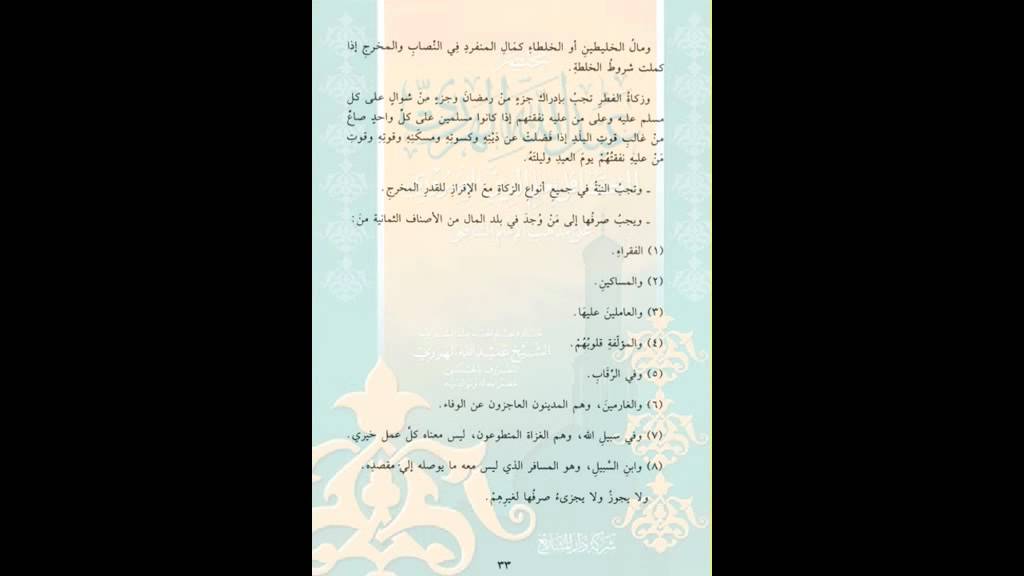 ومالُ الخليطينِ أو الخلطاءِ كمَالِ المنفردِ فِي النِّصابِ والمخرجِ إذا
كملت شروطُ الخلطةِ.
وزكاةُ الفطرِ تجبُ بإدراك جزءٍ منْ رمضانَ وجزءٍ منْ شوالٍ على كل
مسلم عليه وعلى من عليه نفقتهم إذا كانوا مسلمين على كلِّ واحدٍ صاعٌ
منْ غالبِ قوتِ البلَدِ إذا فضلتْ عن دَيْنِهِ وكسوتِهِ ومسكَنِهِ وقوتِهِ وقوتِ
مَنْ عليهِ نفقتُهُمْ يومَ العيدِ وليلتَهُ.
ـ وتجبُ النيّةُ في جميعِ أنواعِ الزكاةِ معَ الإفرازِ للقدرِ المخرجِ.
ـ ويجبُ صرفُها إلى مَنْ وُجدَ في بلد المال من الأصناف الثمانية منَ:
(١) الفقراءِ.
(٢) والمساكينِ.
(٣) والعاملينَ عليهَا.
(٤) والمؤلّفةِ قلوبُهُمْ.
(٥) وفي الرّقابِ.
(٦) والغارمينَ، وهم المدينون العاجزون عن الوفاء.
(٧) وفي سبيلِ الله، وهم الغزاة المتطوعون، ليس معناه كلَّ عمل خيري.
(٨) وابنِ السَّبيلِ، وهو المسافر الذي ليس معه ما يوصله إلى مقصدِه.
ولا يجوزُ ولا يجزىءُ صرفُها لغيرِهِمْ.
شركة دار المشاريع
٣٣